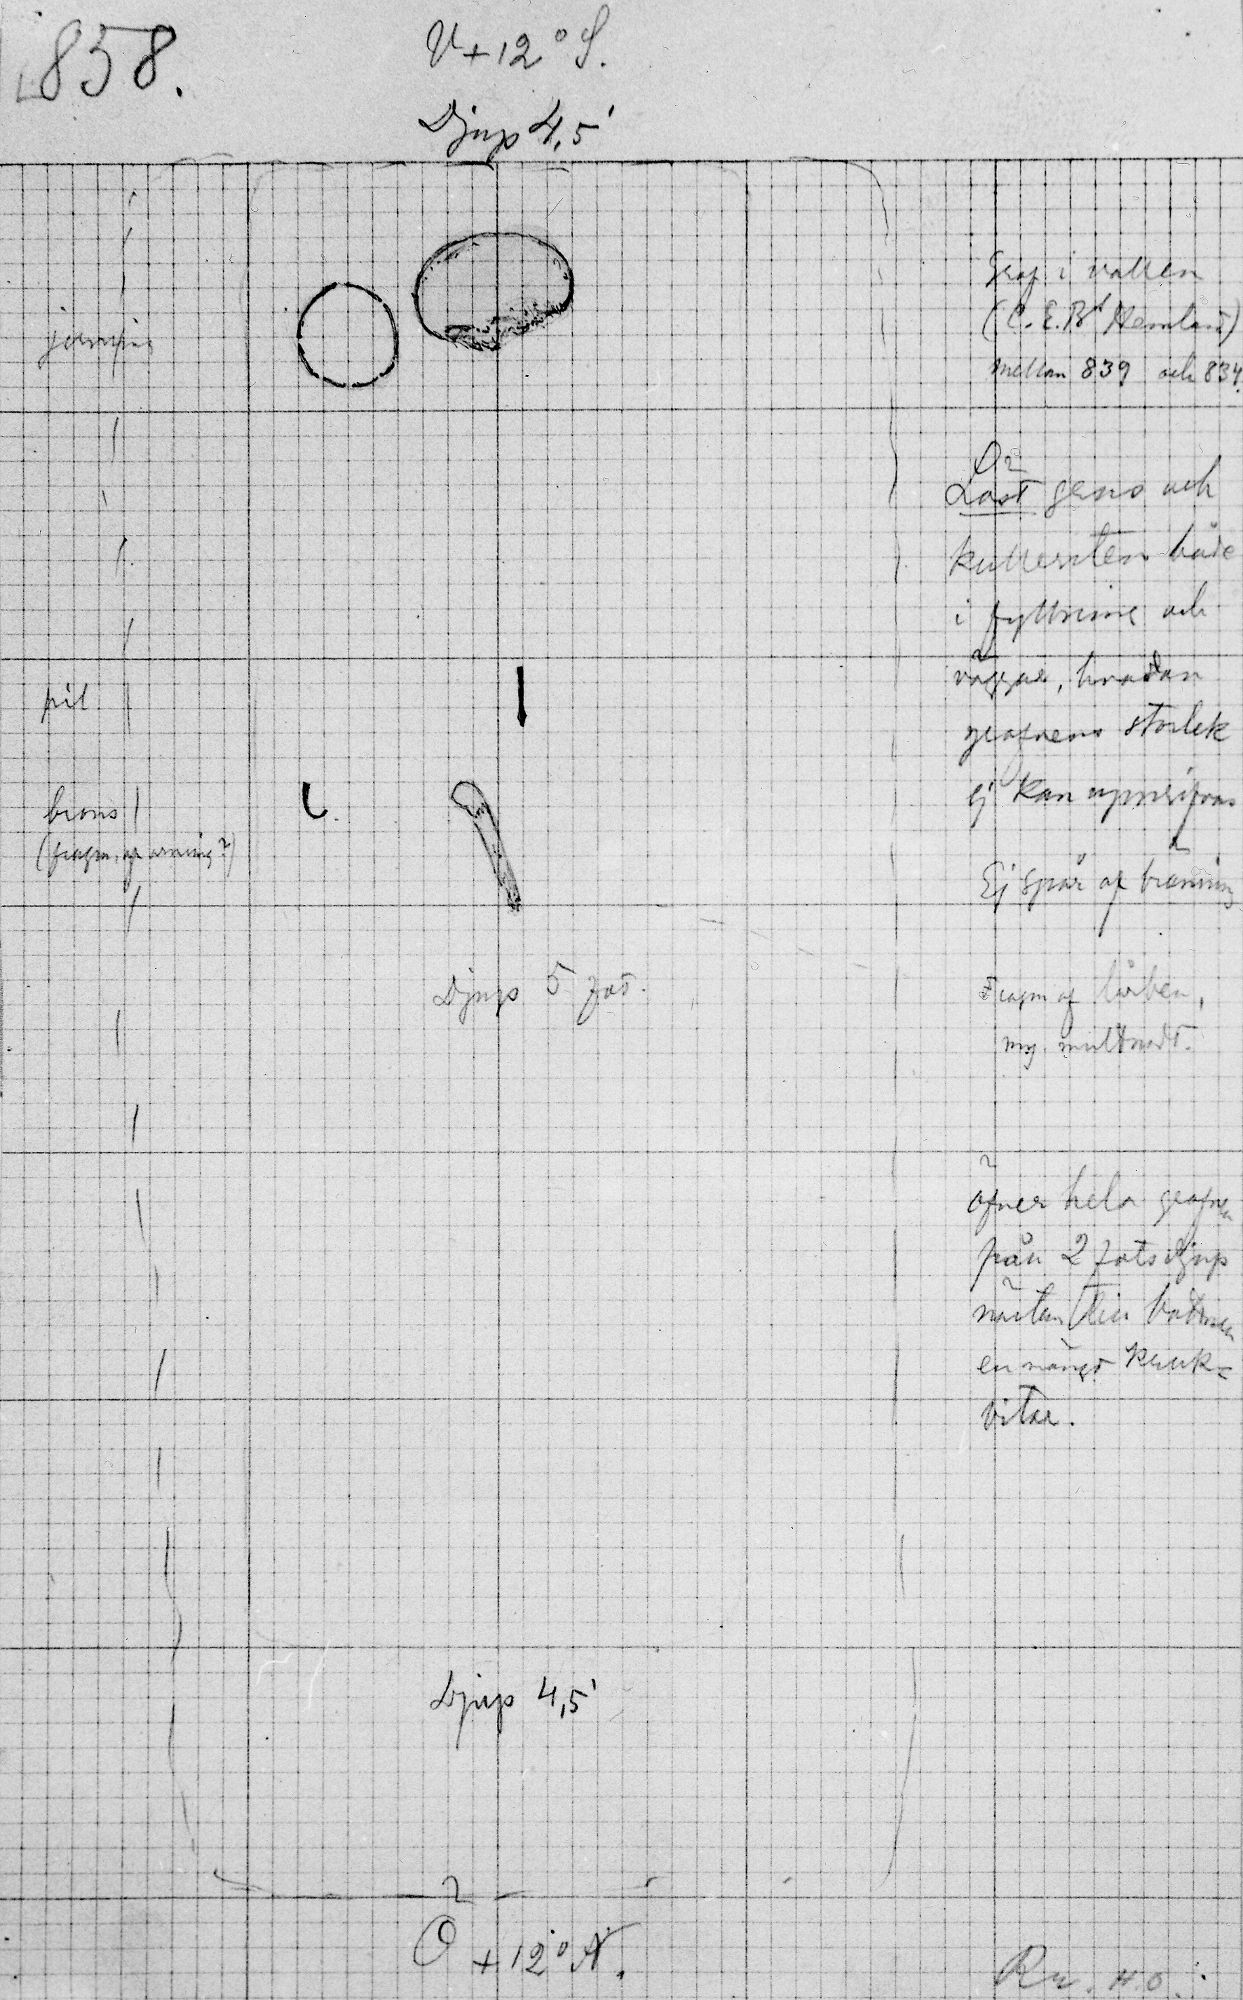 858.
V + 12° S.
Djup 4,5'
Graf i vallen
mellan 839 och 834.
Löst grus och
kullersten både
i fyllning och
väggar, hvadan
grafvens storlek
ej kan uppgifvas
pil
brons
(fragm. af armring?)
Ej spår af bränning
Djup 5 fot.
Fragm af lårben,
myc. multnadt.
öfver hela grafven
från 2 fots djup
nästan till bottnen
en mängd kruk=
bitar.
Djup 4,5'
Ö + 12° N.